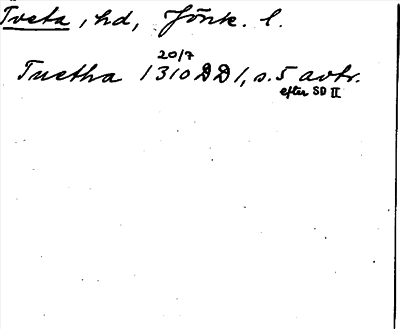 Tveta, hd, Jönk. l.
20/7
Tuetha 1310 DD1, s. 5 avtr.
efter SD II